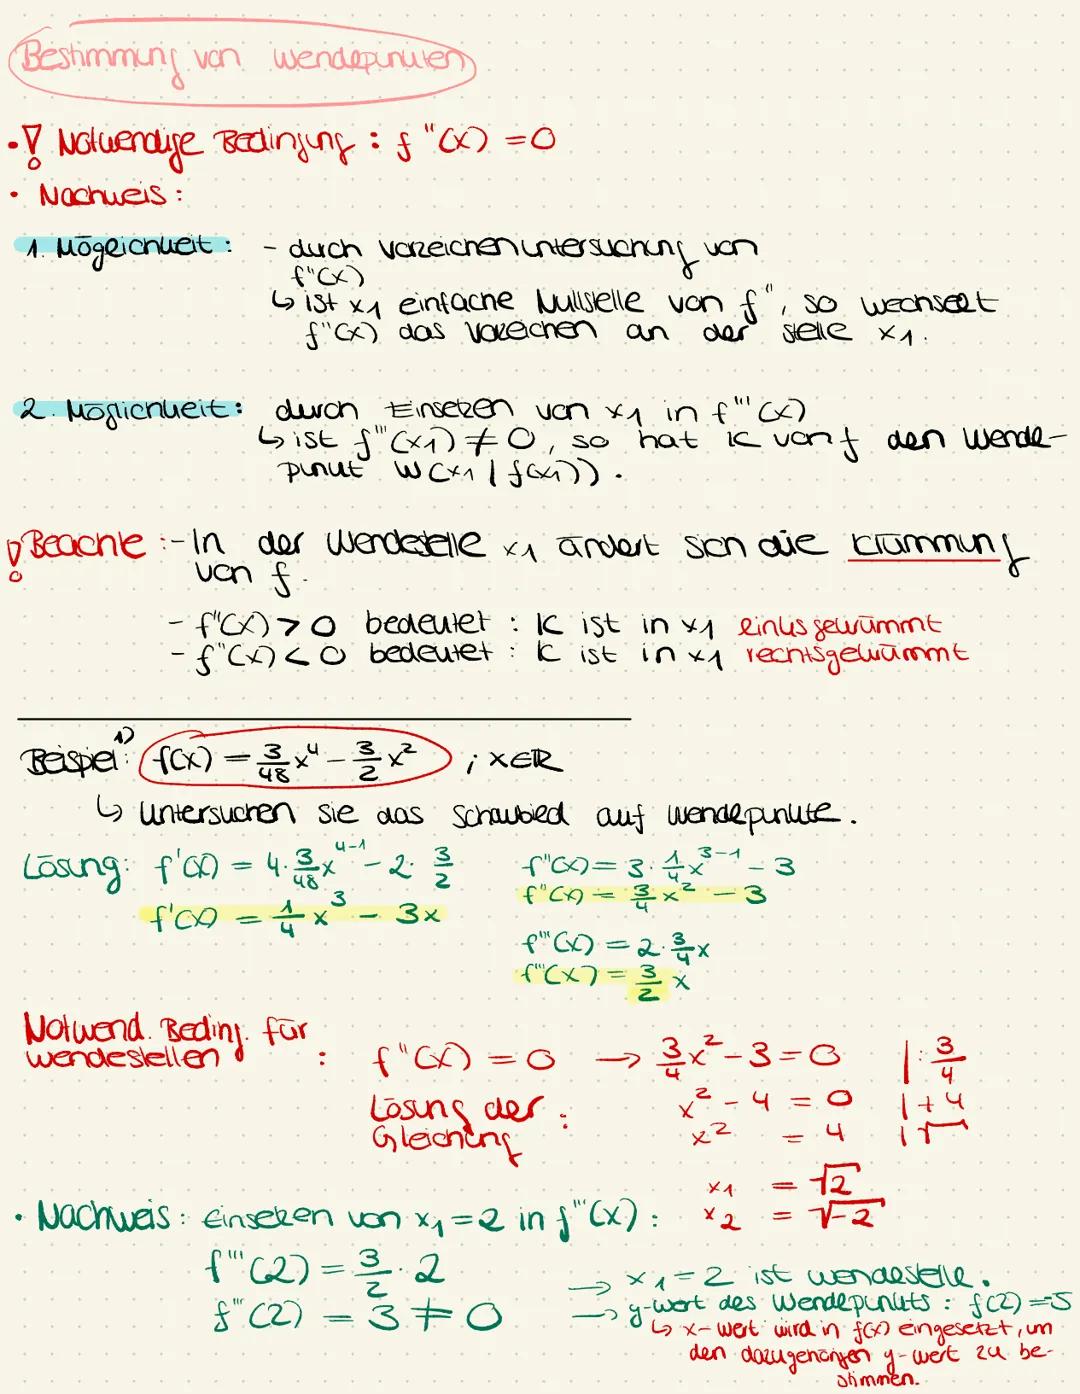 Bestimmung von Wendepunkten
• ! Notwendige Bedingung : f''(x) = 0
• Nachweis :
1. Möglichkeit : - durch Vorzeichenuntersuchung von
f''(x)
↳ ist x1 einfache Nullstelle von f'', so wechselt
f''(x) das Vorzeichen an der Stelle x1.
2. Möglichkeit : durch Einsetzen von x1 in f'''(x)
↳ ist f'''(x1) ≠ 0, so hat K von f den Wende-
punkt W(x1 | f(x1)).
! Beachte : - In der Wendestelle x1 ändert sich die Krümmung
von f.
- f''(x) > 0 bedeutet : K ist in x1 linksgekrümmt
- f''(x) < 0 bedeutet : K ist in x1 rechtsgekrümmt
Beispiel 1) : f(x) = 3/48 x⁴ - 3/2 x² ; x∈ℝ
↳ Untersuchen Sie das Schaubild auf Wendepunkte.
Lösung: f'(x) = 4 · 3/48 x⁴⁻¹ - 2 · 3/2
f'(x) = 1/4 x³ - 3x
f''(x) = 3 · 1/4 x³⁻¹ - 3
f''(x) = 3/4 x² - 3
f'''(x) = 2 · 3/4 x
f'''(x) = 3/2 x
Notwend. Beding. für
Wendestellen : f''(x) = 0 → 3/4 x² - 3 = 0 | : 3/4
Lösung der : x² - 4 = 0 | + 4
Gleichung x² = 4 | √
x1 = √2
x2 = √-2
• Nachweis : Einsetzen von x1 = 2 in f'''(x) :
f'''(2) = 3/2 · 2
f'''(2) = 3 ≠ 0
→ x1 = 2 ist Wendestelle.
→ y-Wert des Wendepunkts : f(2) = -5
↳ x-Wert wird in f(x) eingesetzt, um
den dazugehörigen y-Wert zu be-
stimmen.